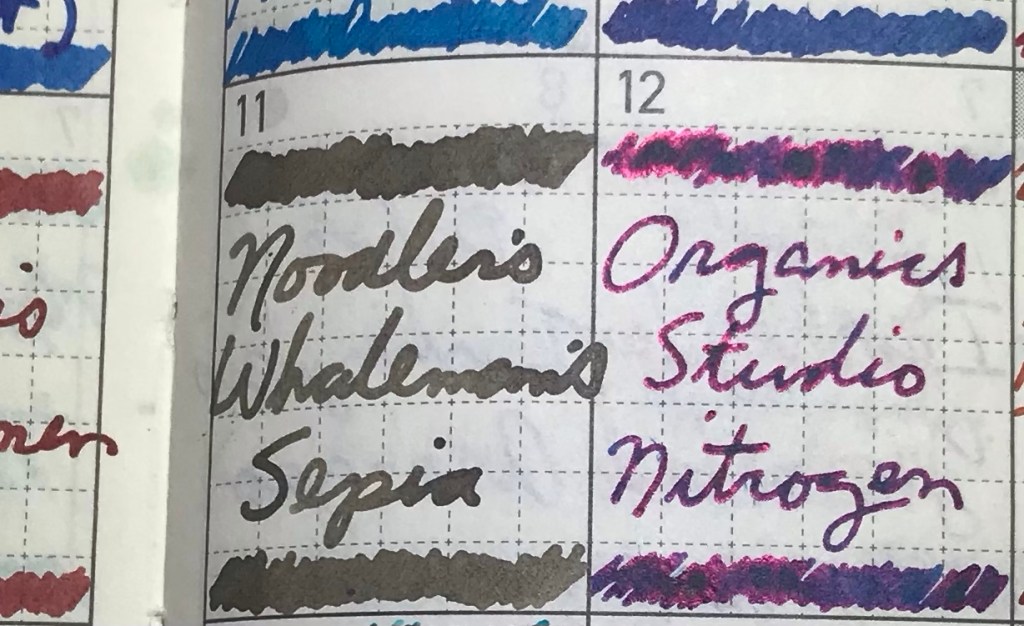 11
Noodler's
Whaleman's
Sepia
12
Organics
Studio
Nitrogen